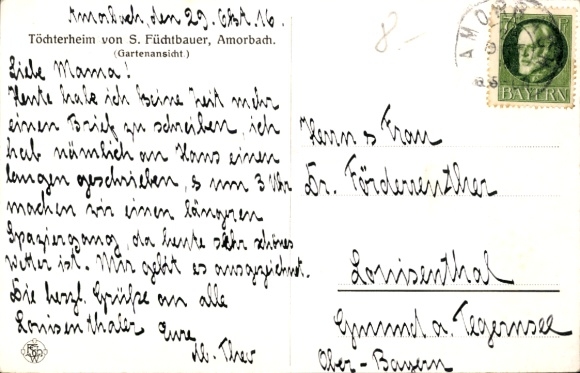 Amorbach, den 29. Okt. 16.
Töchterheim von S. Füchtbauer, Amorbach.
(Gartenansicht.)
Liebe Mama!
Heute hab ich keine Zeit mehr
einen Brief zu schreiben, ich
hab nämlich an Hans einen
langen geschrieben, s um 3 Uhr
machen wir einen längeren
Spaziergang, da heute sehr schönes
Wetter ist. Mir geht es ausgezeichnet.
Die herzl. Grüße an alle
Louisenthaler Eure
M. Ther
8.-
AMORB
BAYERN
Herrn s Frau
Dr. Förderreuther
Louisenthal
Gmund a. Tegernsee
Ober-Bayern